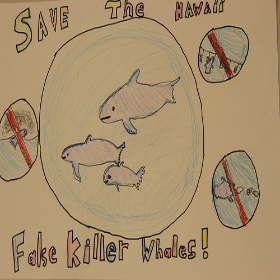 SAVE The HAWAII
Fake Killer Whales!